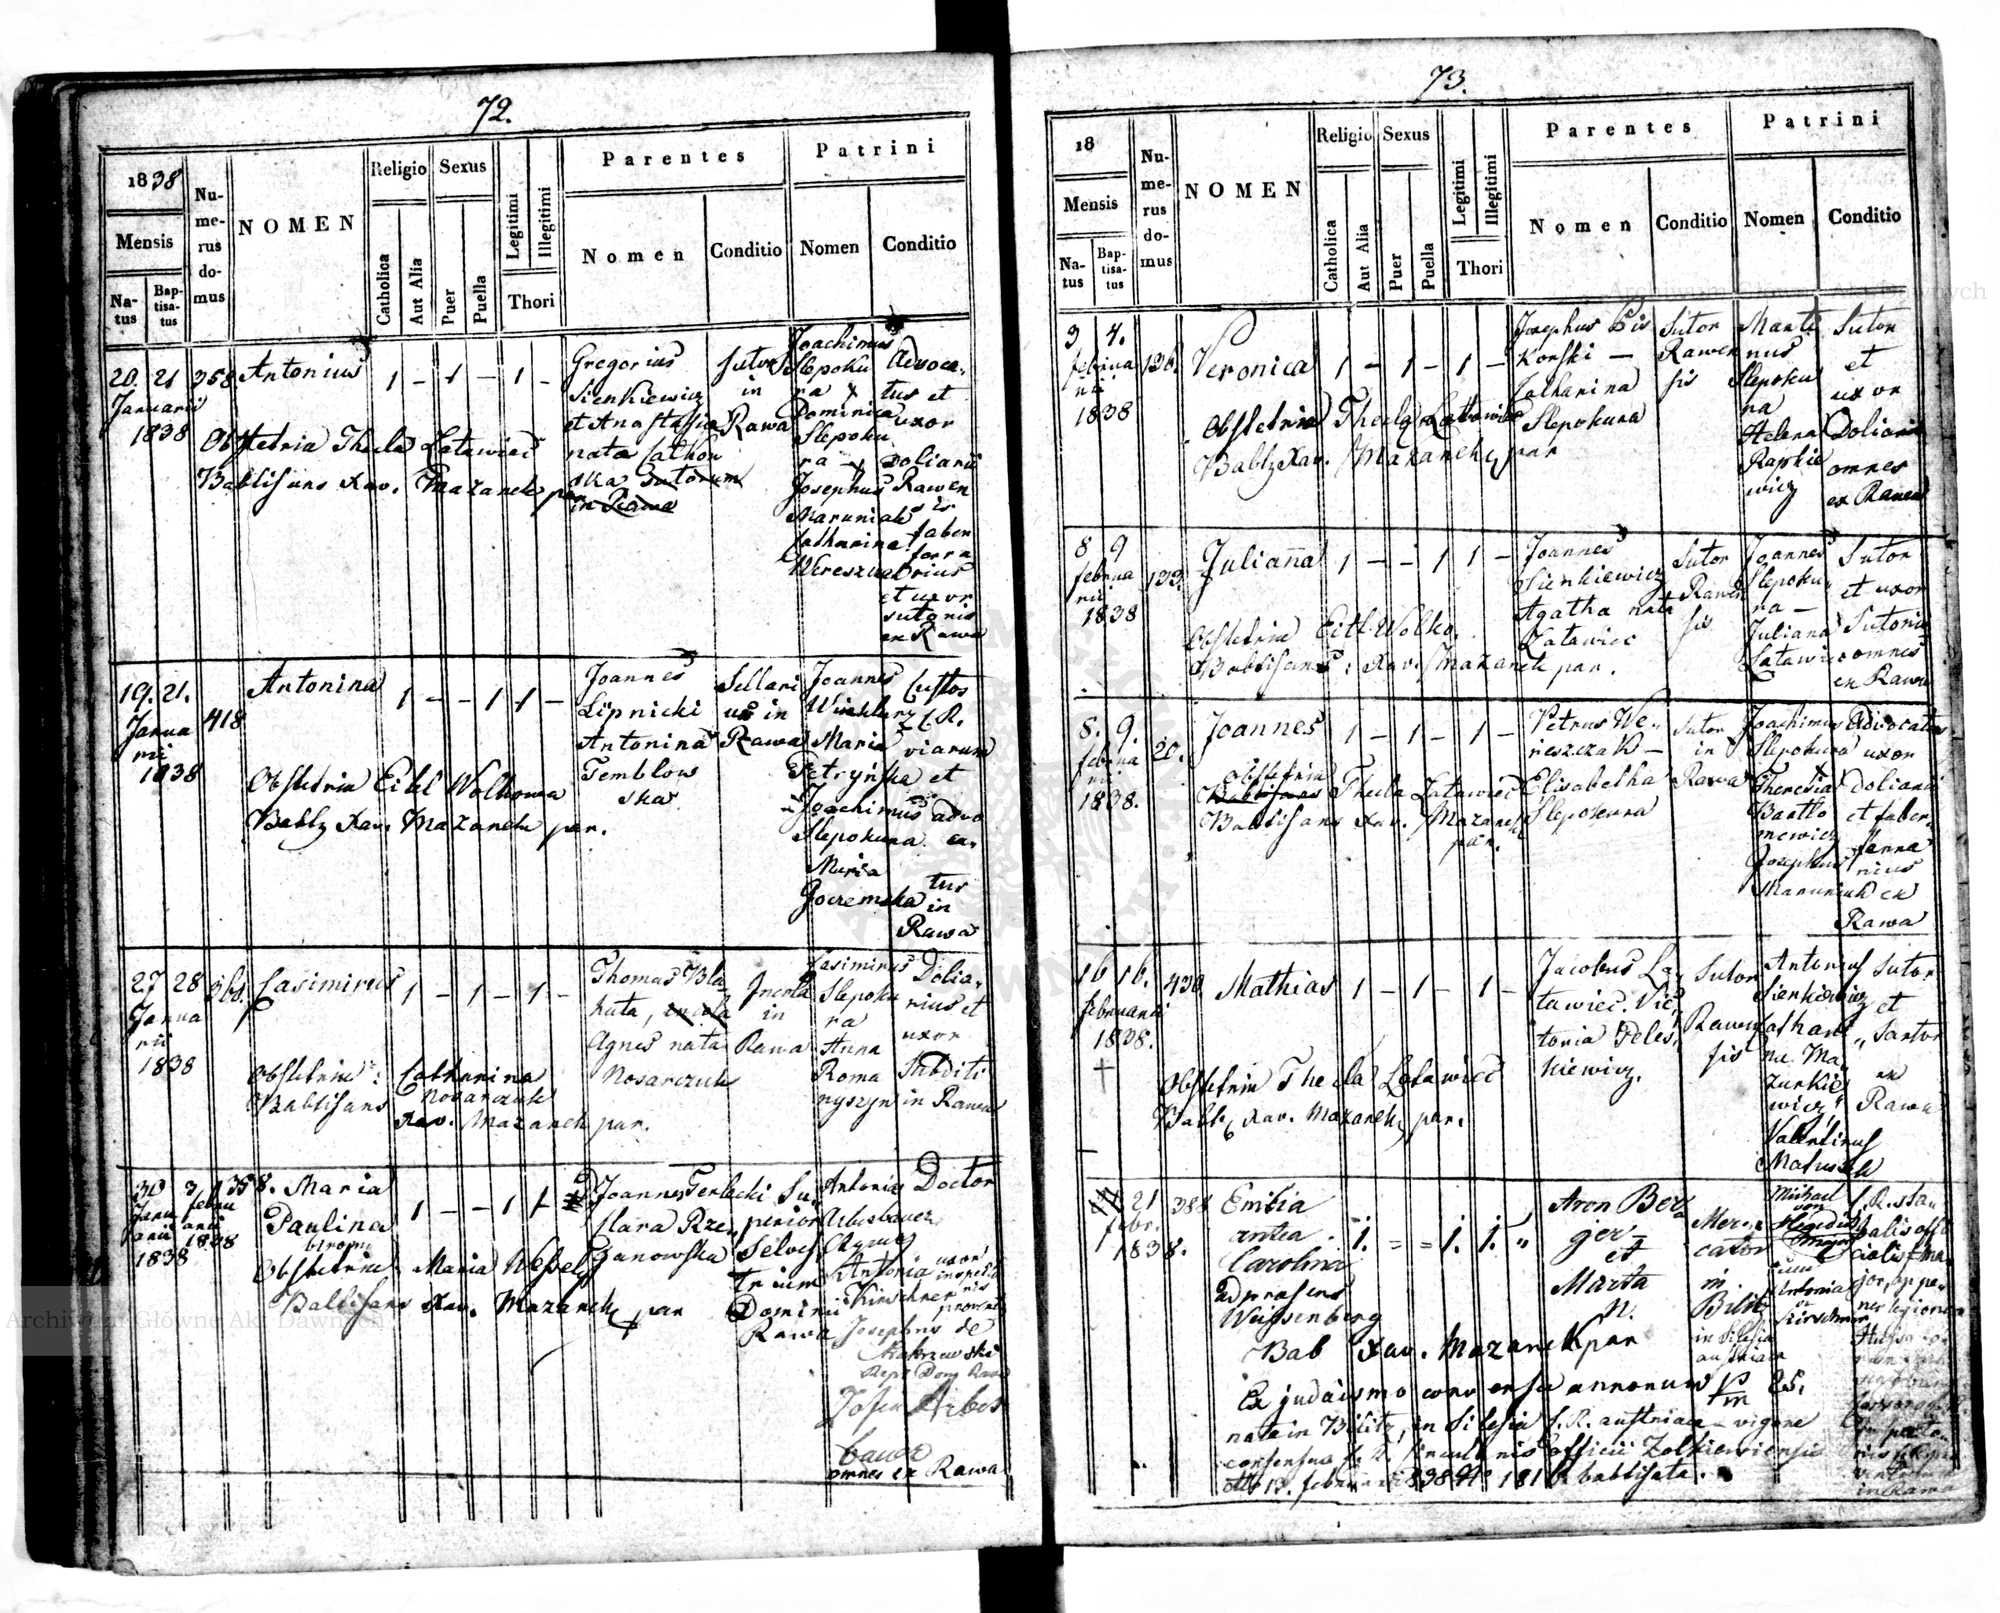 72.
1838
Mensis
Na-
tus
Bap-
tisa-
tus
Nu-
me-
rus
do-
mus
NOMEN
Religio
Catholica
Aut Alia
Sexus
Puer
Puella
Legitimi
Illegitimi
Thori
Parentes
Nomen
Conditio
Patrini
Nomen
Conditio
20. 21
Januarii
1838
358
Antonius
1 - 1 - 1 -
Obstetrix Thecla Latawiec
Babtisans Xav. Mazanek par
Gregorius
Sienkiewicz
et Anastasia
nata
in Rawa
Sutor
in
Rawa
Joachimus
Slepoku
ra X
Dominica
Slepoku
ra
Josephus
Maruniak
Catharina
Advoca-
tus et
uxor
Doliarii
Rawen
sis
faber
ferra
rius
et uxor
sutoris
ex Rawa
19. 21.
Janua
rii
1838
418
Antonina
1 - - 1 1 -
Obstetrix Eitel Wolkowa
Babtz Xav. Mazanek par.
Joannes
Lipnicki
Antonina
Temblow
ska
Sellari
us in
Rawa
Joannes
Winklarz
Maria
Petryńska
Joachimus
Slepokura
Maria
Custos
C. R.
viarum
et
advo
ca-
tus
in
Rawa
27 28
Janua
rii
1838
368.
Casimirus
1 - 1 - 1 -
Obstetrix: Catharina
Nosarczuk
Babtisans
Xav. Mazanek par.
Thomas Bla
huta,
Agnes nata
Nosarczuk
Incola
in
Rawa
Casimirus
Slepoku
ra
Anna
Roma
nyszyn
Dolia-
rius et
uxor
Subditi
in Rawa
30 3
Janu febru
arii arii
1838 1838
Maria
Paulina
binom.
1 - - 1 1
Obstetrix Maria Wessely
Babtisans Xav. Mazanek par
Joannes Terlecki
Clara Rze-
Zanowska
Su-
perior
Silves
trium
Dominii
Rawa
Antonius
Doctor
Antonia
Kirschner
uxor
inspecto
ris
Josephus de
Zakrzewski
Josefa Arbes
bauer
omnes ex Rawa
73.
18
Mensis
Na-
tus
Bap-
tisa-
tus
Nu-
me-
rus
do-
mus
NOMEN
Religio
Catholica
Aut Alia
Sexus
Puer
Puella
Legitimi
Illegitimi
Thori
Parentes
Nomen
Conditio
Patrini
Nomen
Conditio
3 4.
februa
rii
1838
136.
Veronica
1 - 1 - 1 -
Obstetrix Thecla Latawiec
Babtz Xav. Mazanek par
Josephus Pis
korski -
Catharina
Slepokura
Sutor
Rawen
sis
Marti
nus
Slepoku
ra
Helena
Raphie
wicz
Sutor
et
uxor
Doliarii
omnes
ex Rawa
8 9
februa
rii
1838
133.
Julianna
1 - - 1 1 -
Obstetrix Eitl Wolko.
Babtisans: Xav. Mazanek par.
Joannes
Sienkiewicz
Agatha nata
Latawiec
Sutor
Rawen
sis
Joannes
Slepoku
ra -
Juliana
Latawiec
Sutor
et uxor
Sutoris
omnes
ex Rawa
8. 9.
februa
rii
1838.
20.
Joannes
1 - 1 - 1 -
Obstetrix
Thecla Latawiec
Babtisans Xav. Mazanek
par.
Petrus We-
reszczak -
Elisabetha
Slepokura
Sutor
in
Rawa
Joachimus
Slepokura
Theresia
Bartko
niewicz
Josephus
Maruniak
Advocatus
uxor
Doliarii
et faber
ferra
rius
ex
Rawa
16 16.
februarii
1838.
†
430
Mathias
1 - 1 - 1 -
Obstetrix Thecla Latawiec
Babtz Xav. Mazanek par.
Jacobus La-
tawiec. Vic-
toria Peles-
kiewicz.
Sutor
Rawen
sis
Antonius
Sienkiewicz
Cathari
na Ma-
zurkie
wicz,
Valentinus
Matuszek
Sutor
et
Sartor
ex
Rawa
21
febr.
1838.
388
Emilia
antea
Carolina
ad praesens
Weissenberg
1. = = 1. 1. "
Bab Xav. Mazanek par
Aron Ber
ger
et
Marta
N.
Mer-
cator
in
Bilitz
in Silesia
austriaca
Michael
von
Hegedüs
Major
Antonia
de
Kirschner
C. R. sta
balis offi
cialis Ma
jor,
Ex judaismo conversa annorum 25.
nata in Bilitz, in Silesia C. R. austriaca - vigore
consensus C. R. Circularis officii Zolkiewiensis
ddto 13. februarii 838 N° 1816 babtisata.
in Rawa
Archiwum Główne Akt Dawnych
Archiwum Główne Akt Dawnych